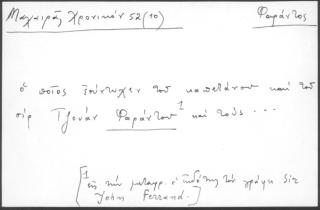 Μαχαιρᾶς Χρονικόν 52 (10)
Φαράντος
ὁ ποῖος ἐσύντυχεν τοῦ καπετάνου καὶ τοῦ
σὶρ Τζουὰν Φαράντου¹ καὶ τοὺς ...
[¹ εἰς τὴν μεταφρ. ὁ ἐκδότης τὸν γράφει Sir
John Ferrand.]